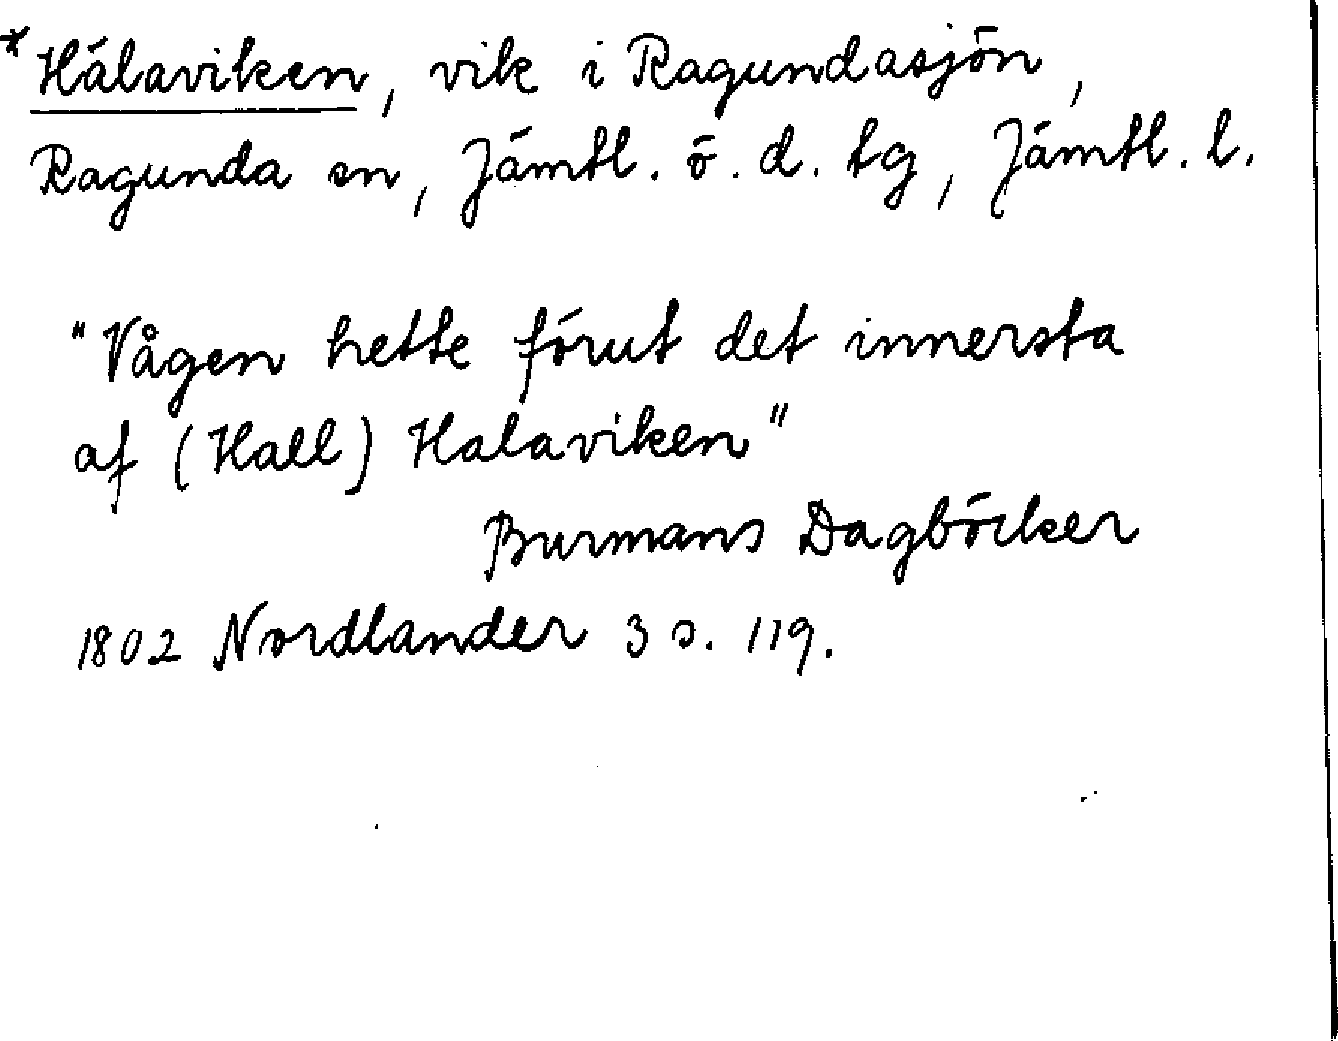 * Hälaviken, vik i Ragundasjön,
Ragunda sn, Jämtl. ö. d. tg, Jämtl. l.
"Vågen hette förut det innersta
af (Hall) Halaviken"
Burmans Dagböcker
1802 Nordlander 3 s. 119.